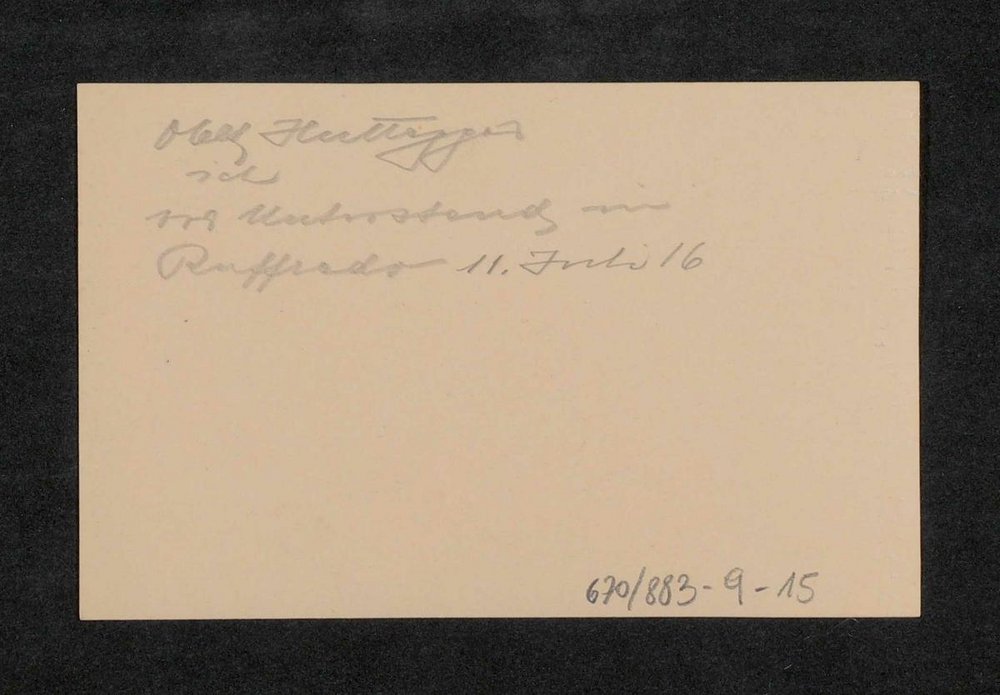 Oblt Huttegger
ich
vor Unterstand in
Raffredo 11. Juli 16
670/883-9-15